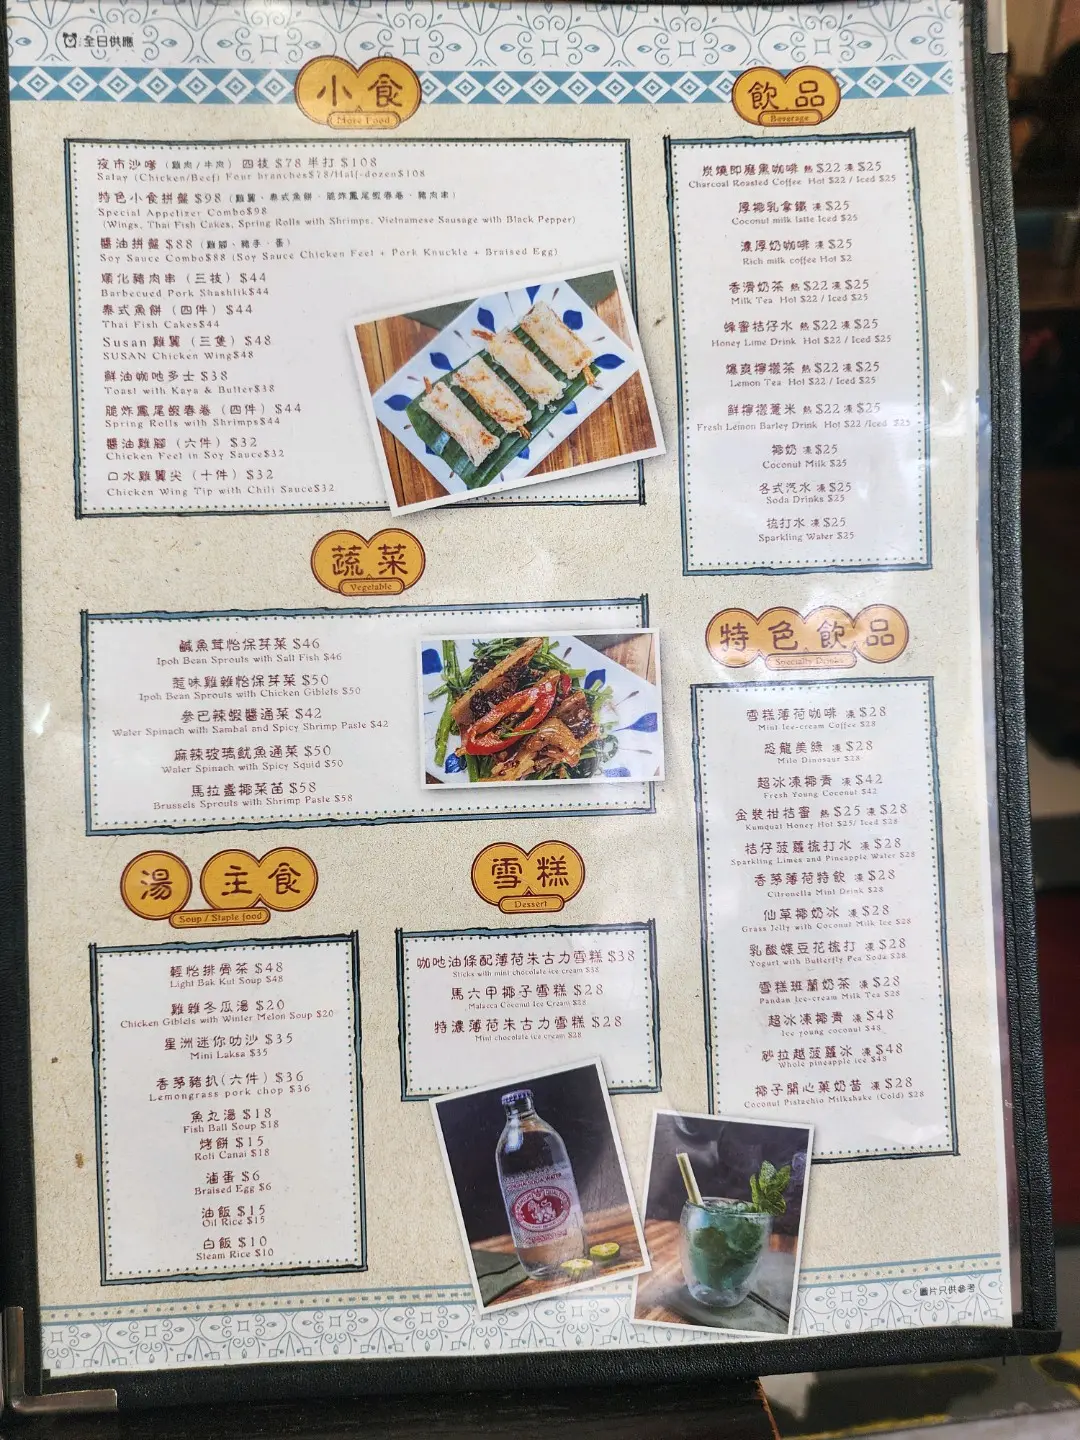 全日供應
小食
More Food
夜市沙嗲（雞肉/牛肉）四枝 $78 半打 $108
Satay (Chicken/Beef) Four branches$78/Half-dozen$108
特色小食拼盤 $98（雞翼、泰式魚餅、脆炸鳳尾蝦春卷、豬肉串）
Special Appetizer Combo$98
(Wings, Thai Fish Cakes, Spring Rolls with Shrimps, Vietnamese Sausage with Black Pepper)
醬油拼盤 $88（雞腳、豬手、蛋）
Soy Sauce Combo$88 (Soy Sauce Chicken Feet + Pork Knuckle + Braised Egg)
順化豬肉串（三枝）$44
Barbecued Pork Shashlik$44
泰式魚餅（四件）$44
Thai Fish Cakes$44
Susan 雞翼（三隻）$48
SUSAN Chicken Wing$48
鮮油咖吔多士 $38
Toast with Kaya & Butter$38
脆炸鳳尾蝦春卷（四件）$44
Spring Rolls with Shrimps$44
醬油雞腳（六件）$32
Chicken Feet in Soy Sauce$32
口水雞翼尖（十件）$32
Chicken Wing Tip with Chili Sauce$32
蔬菜
Vegetable
鹹魚茸怡保芽菜 $46
Ipoh Bean Sprouts with Salt Fish $46
惹味雞雜怡保芽菜 $50
Ipoh Bean Sprouts with Chicken Giblets $50
參巴辣蝦醬通菜 $42
Water Spinach with Sambal and Spicy Shrimp Paste $42
麻辣玻璃魷魚通菜 $50
Water Spinach with Spicy Squid $50
馬拉盞椰菜苗 $58
Brussels Sprouts with Shrimp Paste $58
湯 主食
Soup / Staple food
輕怡排骨茶 $48
Light Bak Kut Soup $48
雞雜冬瓜湯 $20
Chicken Giblets with Winter Melon Soup $20
星洲迷你叻沙 $35
Mini Laksa $35
香茅豬扒(六件) $36
Lemongrass pork chop $36
魚丸湯 $18
Fish Ball Soup $18
烤餅 $15
Roti Canai $18
滷蛋 $6
Braised Egg $6
油飯 $15
Oil Rice $15
白飯 $10
Steam Rice $10
雪糕
Dessert
咖吔油條配薄荷朱古力雪糕 $38
Sticks with mint chocolate ice cream $38
馬六甲椰子雪糕 $28
Malacca Coconut Ice Cream $28
特濃薄荷朱古力雪糕 $28
Mint chocolate ice cream $28
飲品
Beverage
炭燒即磨黑咖啡 熱 $22 凍 $25
Charcoal Roasted Coffee Hot $22 / Iced $25
厚椰乳拿鐵 凍 $25
Coconut milk latte Iced $25
濃厚奶咖啡 凍 $25
Rich milk coffee Hot $2
香滑奶茶 熱 $22 凍 $25
Milk Tea Hot $22 / Iced $25
蜂蜜桔仔水 熱 $22 凍 $25
Honey Lime Drink Hot $22 / Iced $25
爆爽檸檬茶 熱 $22 凍 $25
Lemon Tea Hot $22 / Iced $25
鮮檸檬薏米 熱 $22 凍 $25
Fresh Lemon Barley Drink Hot $22 /Iced $25
椰奶 凍 $25
Coconut Milk $25
各式汽水 凍 $25
Soda Drinks $25
梳打水 凍 $25
Sparkling Water $25
特色飲品
Specialty Drinks
雪糕薄荷咖啡 凍 $28
Mint Ice-cream Coffee $28
恐龍美綠 凍 $28
Milo Dinosaur $28
超冰凍椰青 凍 $42
Fresh Young Coconut $42
金裝柑桔蜜 熱 $25 凍 $28
Kumquat Honey Hot $25/ Iced $28
桔仔菠蘿梳打水 凍 $28
Sparkling Limes and Pineapple Water $28
香茅薄荷特飲 凍 $28
Citronella Mint Drink $28
仙草椰奶冰 凍 $28
Grass Jelly with Coconut Milk Ice $28
乳酸蝶豆花梳打 凍 $28
Yogurt with Butterfly Pea Soda $28
雪糕班蘭奶茶 凍 $28
Pandan Ice-cream Milk Tea $28
超冰凍椰青 凍 $48
Ice young coconut $48
砂拉越菠蘿冰 凍 $48
Whole pineapple ice $48
椰子開心菓奶昔 凍 $28
Coconut Pistachio Milkshake (Cold) $28
圖片只供參考